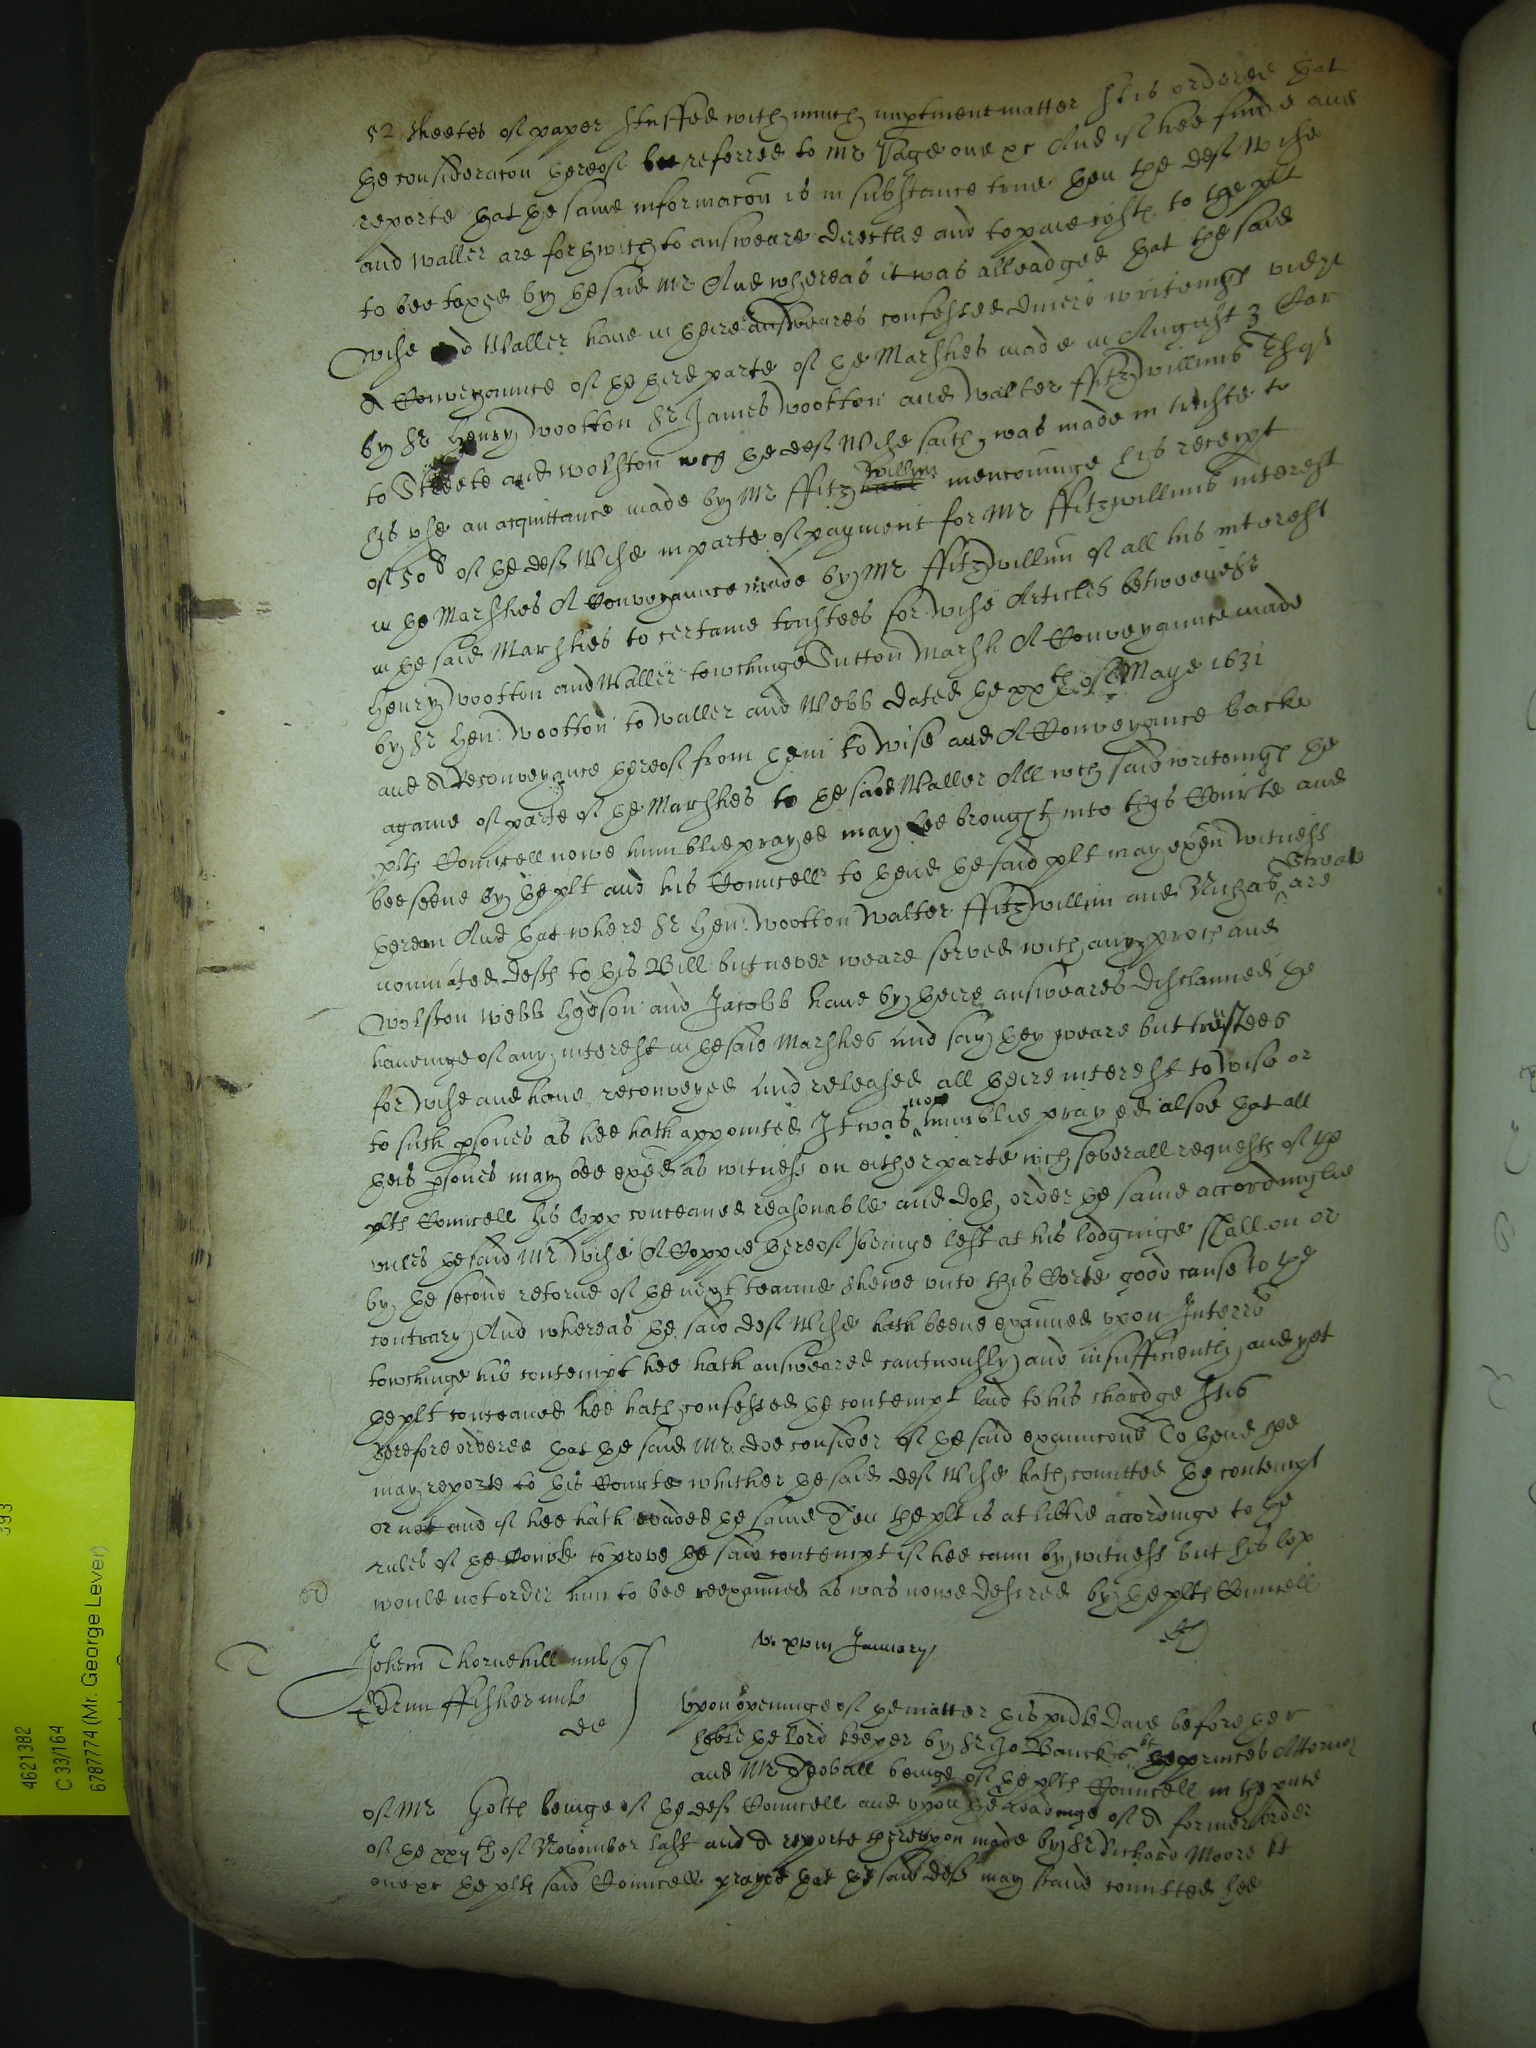 52 sheetes of paper stuffed with much imptinent matter It is ordered that
the consideracon thereof bee referred to Mr Page one &c And if hee finde and
reporte that the same informacon is in substance true then the deft Wise
and Waller are forthwith to answeare directlie and to paie costs to the plt
to bee taxed by the said Mr And whereas it was alleadged that the said
Wise and Waller have in theire answeares confessed divers writeings vidzt
A Conveyaunce of the third parte of the Marshes made in August 3 Car
by Sr Henry Wootton Sr James Wootton and Walter ffitzwillims Esqr
to Steete and Wolston wch the deft Wise saith was made in truste to
his use an acquittance made by Mr ffitzwillms menconinge his receipt
of 50l of the deft Wise in parte of payment for Mr ffitzwillims interest
in the Marshes A Conveyaunce made by Mr ffitzwillim of all his interest
in the said Marshes to certaine trustees for Wise Articles betweene Sr
Henry Wootton and Waller towchinge Sutton Marsh A Conveyaunce made
by Sr Hen: Wootton to Waller and Webb dated the xxth of Maye 1631
and A Reconveyance thereof from them to Wise and A Conveyance backe
againe of parte of the Marshes to the said Waller All wch said writeings the
plts Councell nowe humblie prayed may bee brought into this Courte and
bee seene by the plt and his Councell to thend the said plt may exen witness
thereon And that where Sr Hen: Wootton Walter ffitzwillim and Nichas Steete are
nominated defts to his Bill but never weare served with any proces and
Wolston Webb Hodson and Jacobb have by theire answeares disclaimed the
haveinge of any interest in the said Marshes and say they weare but trustees
for Wise and have reconveyed and released all theire interest to Wise or
to such psones as hee hath appointed It was now humblie prayed alsoe that all
theis psones may bee exed as witness on either parte wch severall requests of the
plts Councell his lopp conceaved reasonable and doth order the same accordinglie
unles the said Mr Wise A Coppie thereof beinge left at his lodginge shall on or
by the second retorne of the next tearme shewe unto this Corte good cause to the
contrary And whereas the said deft Wise hath beene exained upon Interrs
towchinge his contempt hee hath answeared cautiously and insufficiently and yet
the plt conceaves hee hath confessed the contempt laid to his chardge It is
therefore ordered that the said Mr doe consider of the said exainacons To thend hee
may reporte to this Courte whither the said deft Wise hath comitted the contempt
or not and if hee hath evaded the same Then the plt is at libtie accordinge to the
rules of the Courte to prove the said contempt if hee cann by witness but his lop
would not order him to bee reexained as was nowe desired by the plts Councell
v xviii January
Thornehill mil
Edrum ffisher mil
de
Upon openinge of the matter this pnte daie before the
hoble the lord keeper by Sr Jo Banckes kt the princes Attorny
and Mr beinge of the plts Councell in the pnce
of Mr Goltz beinge of the defts Councell and upon the readinge of A former order
of the xxijth of November last and A reporte thereupon made by Sr Richard Moore kt
one &c the plts said Councell prayed that the said deft may stand comitted hee
4621382
C 33/164
6787774 (Mr. George Lever)